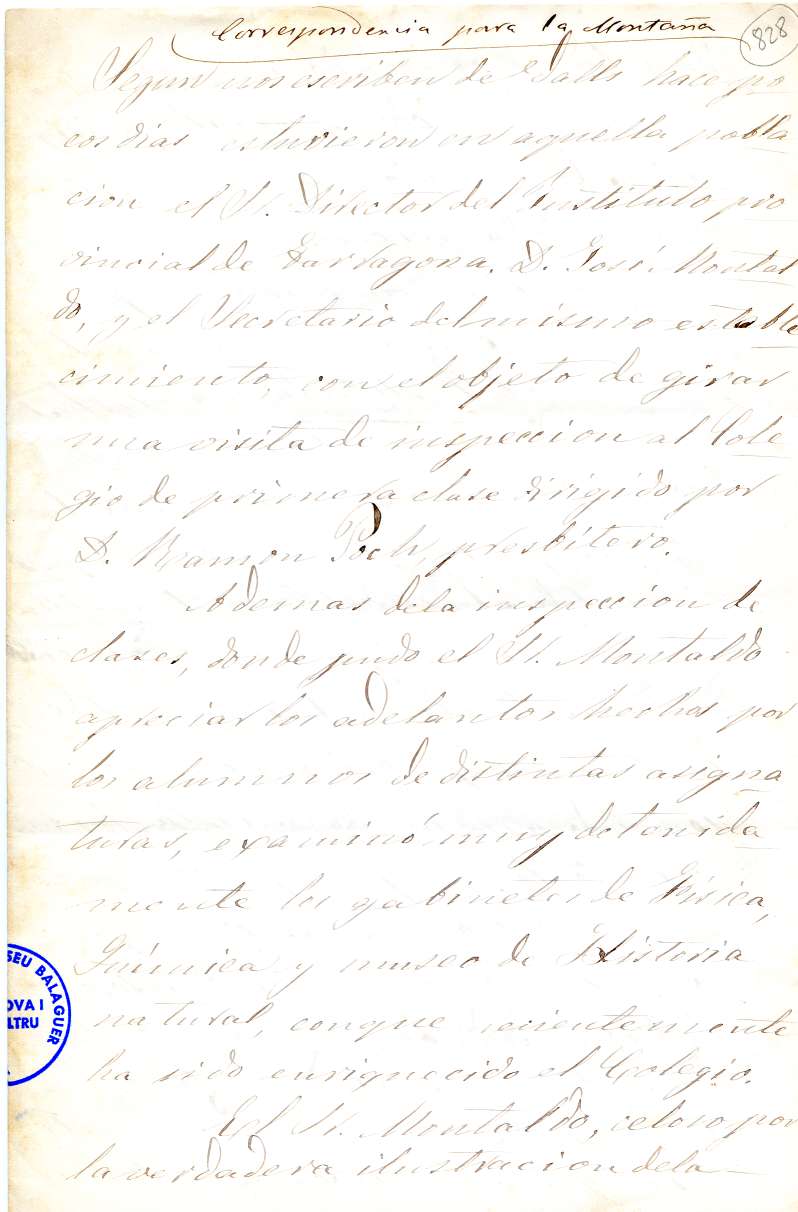 Correspondencia para la Montaña
828
Segun nos escriben de Valls hace po
cos dias estuvieron en aquella pobla
cion el Sr. Director del Instituto pro
vincial de Tarragona, D. José Montal
do, y el Secretario del mismo estable
cimiento, con el objeto de girar
una visita de inspeccion al Cole
gio de primera clase dirigido por
D. Ramon Poch, presbitero.
Ademas dela inspeccion de
clases, donde pudo el Sr. Montaldo
apreciar los adelantos hechos por
los alumnos de distintas asigna
turas, examinó muy detenida
mente los gabinetes de Fisica,
Quimica y museo de Historia
natural, conque recientemente
ha sido enriquecido el Colegio.
El Sr. Montaldo, celoso por
la verdadera ilustracion dela
SEU BALAGUER
OVA I
LTRU